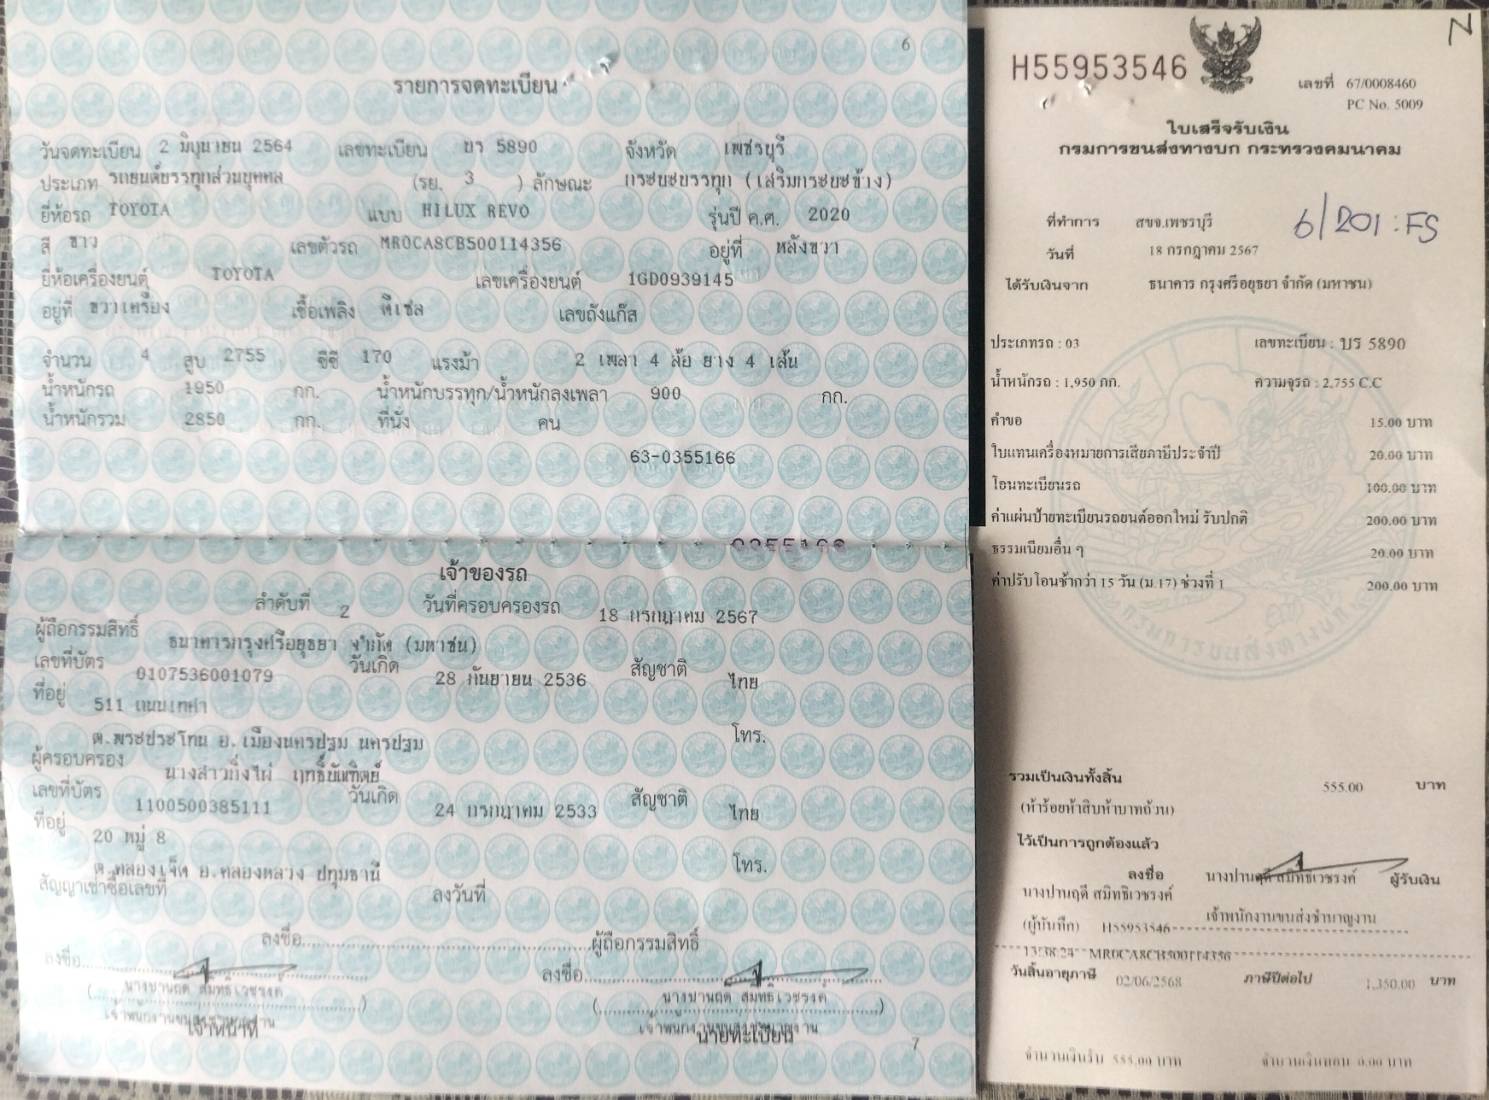 6
รายการจดทะเบียน
วันจดทะเบียน 2 มิถุนายน 2564 เลขทะเบียน บร 5890 จังหวัด เพชรบุรี
ประเภท รถยนต์บรรทุกส่วนบุคคล (รย. 3 ) ลักษณะ กระบะบรรทุก (เสริมกระบะข้าง)
ยี่ห้อรถ TOYOTA แบบ HILUX REVO รุ่นปี ค.ศ. 2020
สี ขาว เลขตัวรถ MR0CA8CB500114356 อยู่ที่ หลังขวา
ยี่ห้อเครื่องยนต์ TOYOTA เลขเครื่องยนต์ 1GD0939145
อยู่ที่ ขวาเครื่อง เชื้อเพลิง ดีเซล เลขถังแก๊ส
จำนวน 4 สูบ 2755 ซีซี 170 แรงม้า 2 เพลา 4 ล้อ ยาง 4 เส้น
น้ำหนักรถ 1950 กก. น้ำหนักบรรทุก/น้ำหนักลงเพลา 900 กก.
น้ำหนักรวม 2850 กก. ที่นั่ง คน
63-0355166
เจ้าของรถ
ลำดับที่ 2 วันที่ครอบครองรถ 18 กรกฎาคม 2567
ผู้ถือกรรมสิทธิ์ ธนาคารกรุงศรีอยุธยา จำกัด (มหาชน)
เลขที่บัตร 0107536001079 วันเกิด 28 กันยายน 2536 สัญชาติ ไทย
ที่อยู่ 511 ถนนเทศา
ต.พระประโทน อ.เมืองนครปฐม นครปฐม โทร.
ผู้ครอบครอง นางสาวกิ่งไผ่ ฤทธิ์บัณฑิตย์
เลขที่บัตร 1100500385111 วันเกิด 24 กรกฎาคม 2533 สัญชาติ ไทย
ที่อยู่ 20 หมู่ 8
ต.คลองเจ็ด อ.คลองหลวง ปทุมธานี โทร.
สัญญาเช่าซื้อเลขที่ ลงวันที่
ลงชื่อ ผู้ถือกรรมสิทธิ์
ลงชื่อ ลงชื่อ
(นางปานฤดี สมิทธิเวชรงค์) (นางปานฤดี สมิทธิเวชรงค์)
เจ้าพนักงานขนส่งชำนาญงาน เจ้าพนักงานขนส่งชำนาญงาน
เจ้าหน้าที่ นายทะเบียน
7
N
H55953546
เลขที่ 67/0008460
PC No. 5009
ใบเสร็จรับเงิน
กรมการขนส่งทางบก กระทรวงคมนาคม
ที่ทำการ สขจ.เพชรบุรี 6/201:FS
วันที่ 18 กรกฎาคม 2567
ได้รับเงินจาก ธนาคาร กรุงศรีอยุธยา จำกัด (มหาชน)
ประเภทรถ : 03 เลขทะเบียน : บร 5890
น้ำหนักรถ : 1,950 กก. ความจุรถ : 2,755 C.C
คำขอ 15.00 บาท
ใบแทนเครื่องหมายการเสียภาษีประจำปี 20.00 บาท
โอนทะเบียนรถ 100.00 บาท
ค่าแผ่นป้ายทะเบียนรถยนต์ออกใหม่ รับปกติ 200.00 บาท
ธรรมเนียมอื่น ๆ 20.00 บาท
ค่าปรับโอนช้ากว่า 15 วัน (ม.17) ช่วงที่ 1 200.00 บาท
กรมการขนส่งทางบก
รวมเป็นเงินทั้งสิ้น 555.00 บาท
(ห้าร้อยห้าสิบห้าบาทถ้วน)
ไว้เป็นการถูกต้องแล้ว
ลงชื่อ นางปานฤดี สมิทธิเวชรงค์ ผู้รับเงิน
นางปานฤดี สมิทธิเวชรงค์
(ผู้บันทึก) H55953546 เจ้าพนักงานขนส่งชำนาญงาน
13:38:24 MR0CA8CB500114356
วันสิ้นอายุภาษี 02/06/2568 ภาษีปีต่อไป 1,350.00 บาท
จำนวนเงินรับ 555.00 บาท จำนวนเงินทอน 0.00 บาท